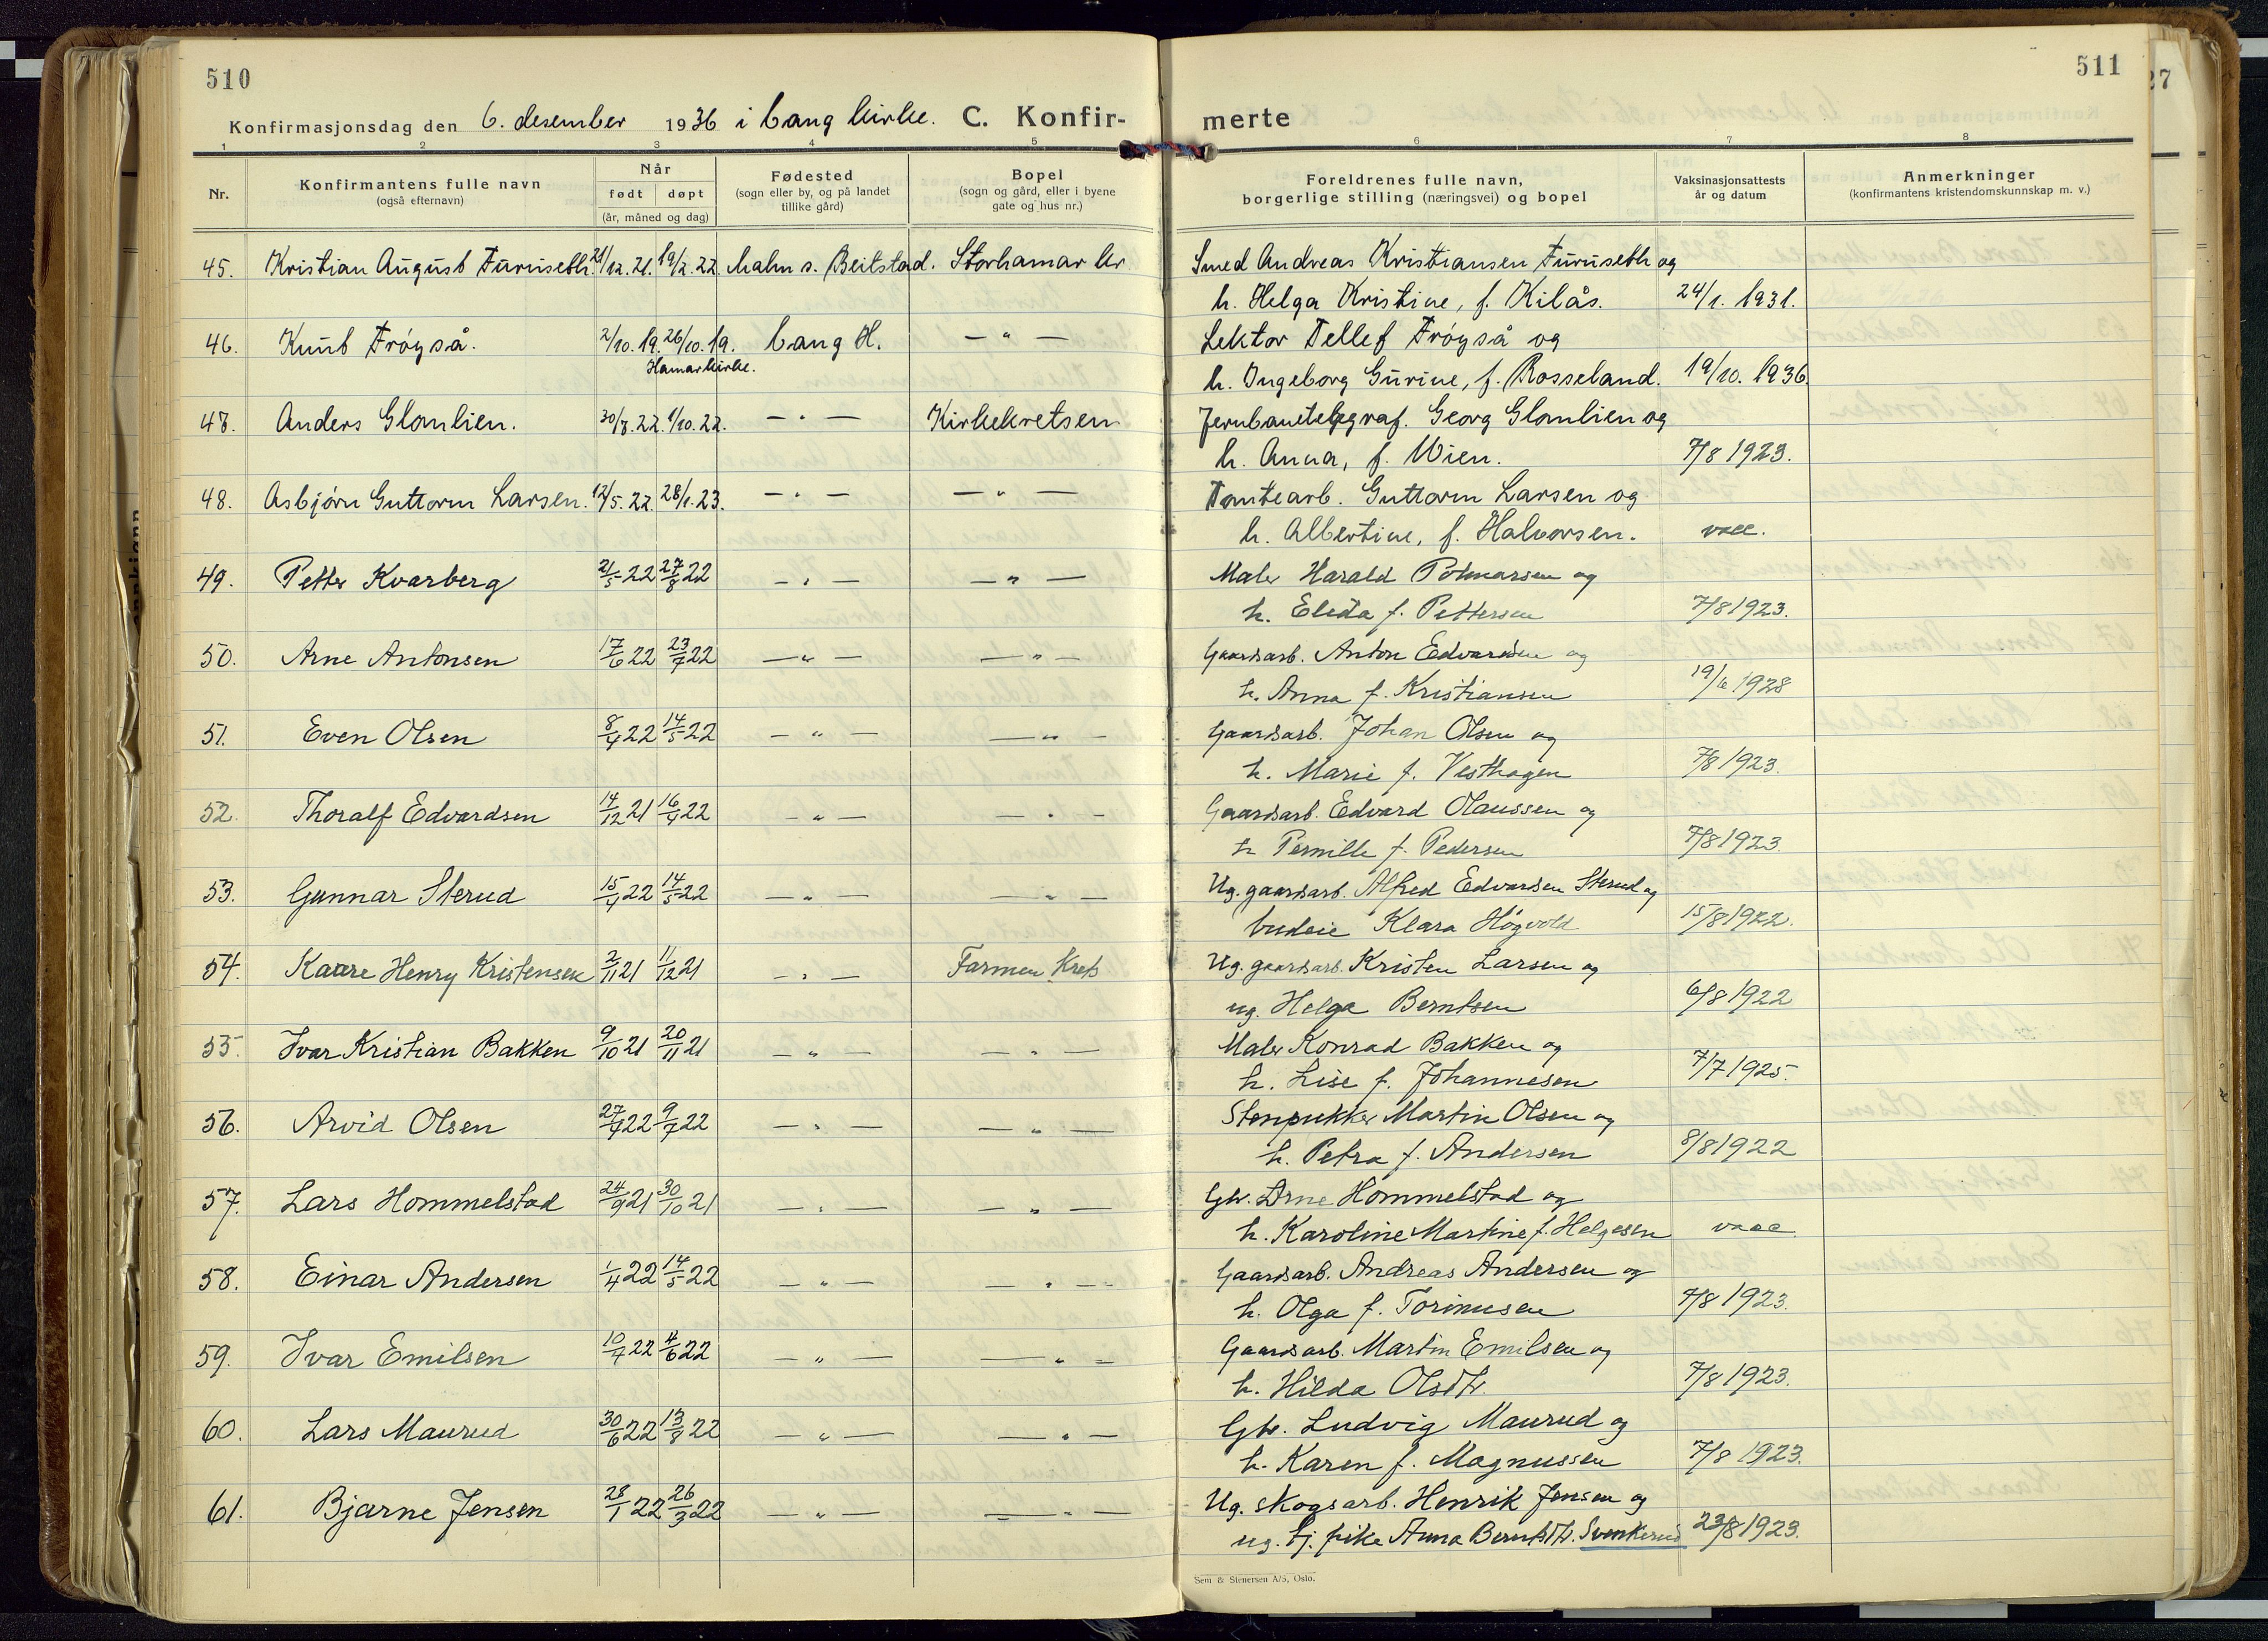 510
Konfirmasjonsdag den 6. desember 1936 i Vang kirke. C. Konfir-
1 2 3 4 5
Nr. Konfirmantens fulle navn (også efternavn) Når født døpt (år, måned og dag) Fødested (sogn eller by, og på landet tillike gård) Bopel (sogn og gård, eller i byene gate og hus nr.)
45. Kristian August Furuseth. 21/12.21. 19/2.22 Malm s. Beitstad. Storhamar kr.
46. Knut Frøyså. 2/10.19. 26/10.19. Vang H. — " —
Hamar kirke.
47. Anders Glomlien. 30/7.22. 1/10.22. — " — Kirkekretsen
48. Asbjørn Guttorm Larsen. 12/5.22. 28/1.23. — " — — " —
49. Petter Kvarberg 21/5 22 27/8 22 — " — — " —
50. Arne Antonsen 17/6 22 23/7 22 — " — — " —
51. Even Olsen 8/4 22 14/5 22 — " — — " —
52. Thoralf Edvardsen 14/12 21 16/4 22 — " — — " —
53. Gunnar Sterud 15/4 22 14/5 22 — " — — " —
54. Kaare Henry Kristensen 2/11 21 11/12 21 — " — Farmen Krets
55. Ivar Kristian Bakken 9/10 21 20/11 21 — " — — " —
56. Arvid Olsen 27/4 22 9/7 22 — " — — " —
57. Lars Hommelstad 24/9 21 30/10 21 — " — — " —
58. Einar Andersen 1/4 22 14/5 22 — " — — " —
59. Ivar Emilsen 10/4 22 4/6 22 — " — — " —
60. Lars Maurud 30/6 22 13/8 22 — " — — " —
61. Bjarne Jensen 28/1 22 26/3 22 — " — — " —
511
merte
6 7 8
Foreldrenes fulle navn, borgerlige stilling (næringsvei) og bopel Vaksinasjonsattests år og datum Anmerkninger (konfirmantens kristendomskunnskap m. v.)
Smed Andreas Kristiansen Furuseth og
h. Helga Kristine, f. Kilås. 24/1. 1931.
Lektor Tellef Frøyså og
h. Ingeborg Gurine, f. Rosseland. 19/10. 1936.
Jernbanetelegraf. Georg Glomlien og
h. Anna, f. Wien. 7/8 1923.
Tomtearb. Guttorm Larsen og
h. Albertine, f. Halvorsen. vacc.
Maler Harald Polmarsen og
h. Elida f. Pettersen 7/8 1923.
Gaardsarb. Anton Edvardsen og
h. Anna f. Kristiansen 19/6 1928
Gaardsarb. Johan Olsen og
h. Marie f. Vesthagen 7/8 1923.
Gaardsarb. Edvard Olaussen og
h. Pernille f. Pedersen 7/8 1923.
Ug. gaardsarb. Alfred Edvardsen Sterud og
budeie Klara Høgvold 15/8 1922.
Ug. gaardsarb. Kristen Larsen og
ug. Helga Berntsen 6/8 1922
Maler Konrad Bakken og
h. Lise f. Johannesen 7/7 1925.
Stenpukker Martin Olsen og
h. Petra f. Andersen 8/8 1922
Gbr. Arne Hommelstad og
h. Karoline Martine f. Helgesen vacc
Gaardsarb. Andreas Andersen og
h. Olga f. Torinusen 7/8 1923.
Gaardsarb. Martin Emilsen og
h. Hilda Olsdtr. 7/8 1923.
Gbr. Ludvig Maurud og
h. Karen f. Magnussen 7/8 1923.
Ug. skogsarb. Henrik Jensen og
ug. tj. pike Anna Berntsdtr. Svenkerud 23/8 1923.
Sem & Stenersen A/S, Oslo.